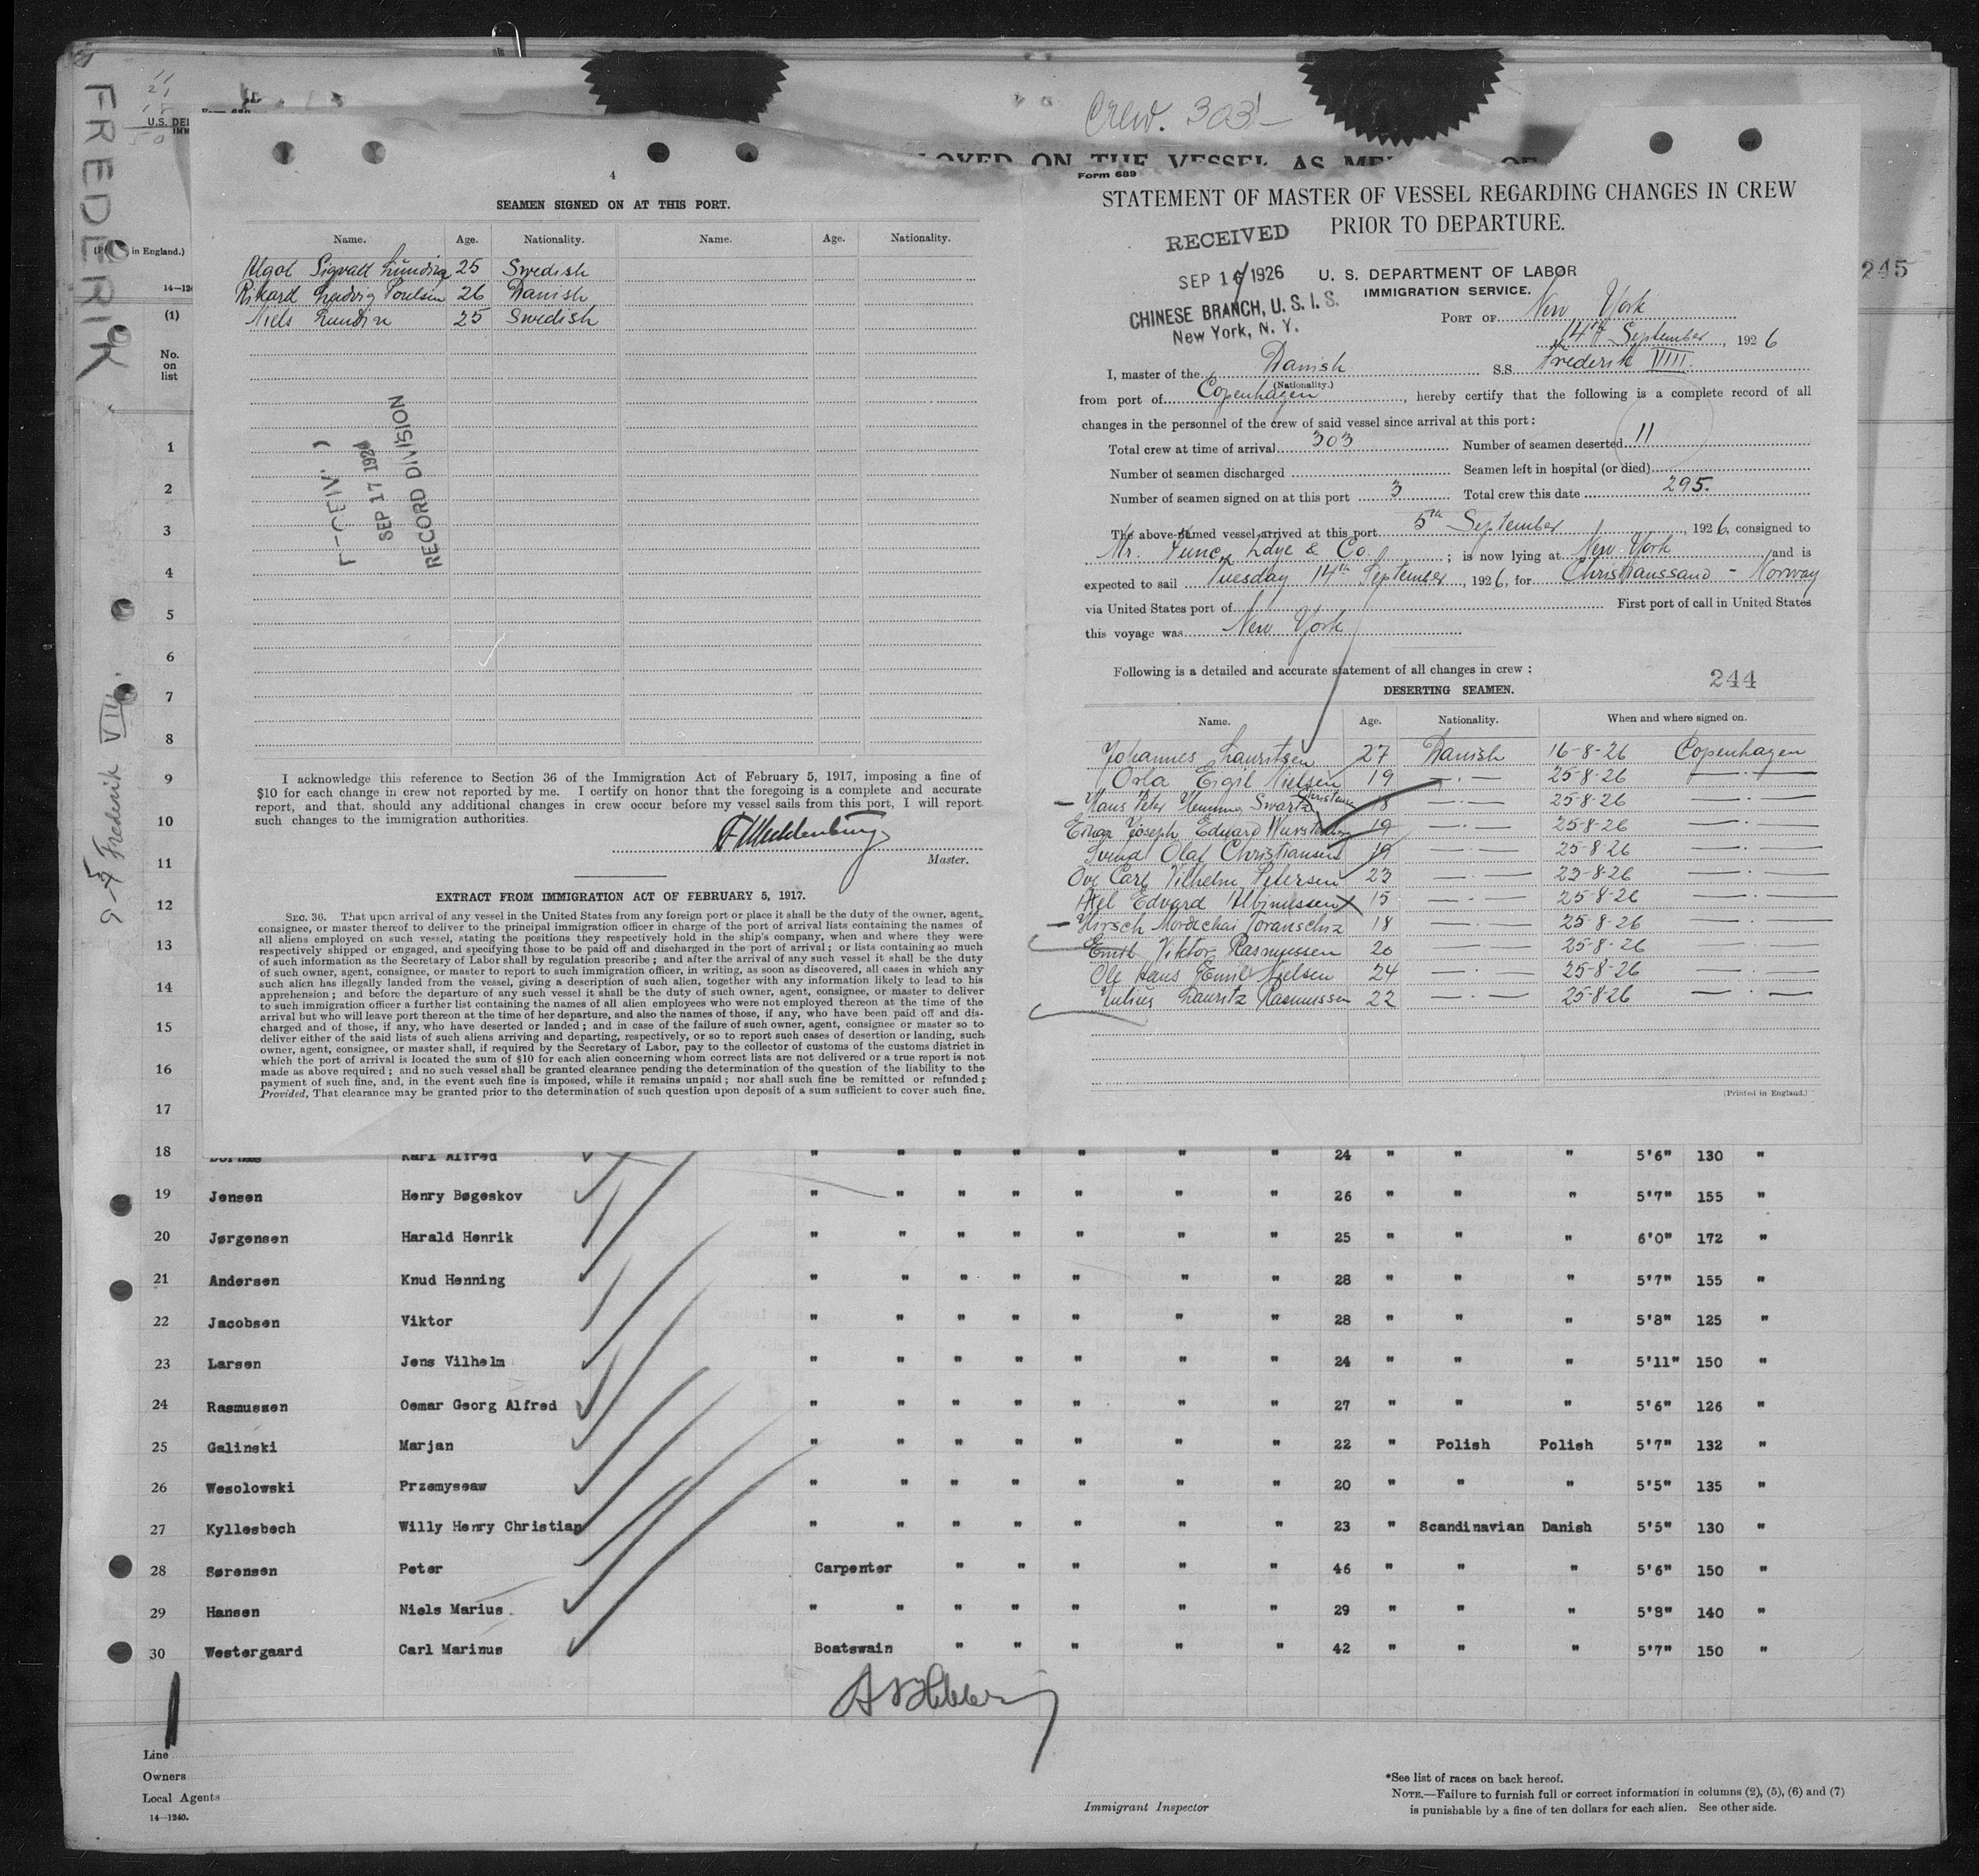 FREDERIK
S-S Frederik VIII.
11
21
18
50
Crew. 303
245
OYED ON THE VESSEL AS ME
U.S. DE
in England.)
(1)
No.
on
list
1
2
3
4
5
6
7
8
9
10
11
12
13
14
15
16
17
4
SEAMEN SIGNED ON AT THIS PORT.
Name. Age. Nationality. Name. Age. Nationality.
Algot Sigvall Lundin 25 Swedish
Rikard Ludvig Poulsen 26 Danish
Niels Lundin 25 Swedish
SEP 17 192
RECORD DIVISION
I acknowledge this reference to Section 36 of the Immigration Act of February 5, 1917, imposing a fine of
$10 for each change in crew not reported by me. I certify on honor that the foregoing is a complete and accurate
report, and that, should any additional changes in crew occur before my vessel sails from this port, I will report
such changes to the immigration authorities.
Master.
EXTRACT FROM IMMIGRATION ACT OF FEBRUARY 5, 1917.
SEC. 36. That upon arrival of any vessel in the United States from any foreign port or place it shall be the duty of the owner, agent,
consignee, or master thereof to deliver to the principal immigration officer in charge of the port of arrival lists containing the names of
all aliens employed on such vessel, stating the positions they respectively hold in the ship's company, when and where they were
respectively shipped or engaged, and specifying those to be paid off and discharged in the port of arrival; or lists containing so much
of such information as the Secretary of Labor shall by regulation prescribe; and after the arrival of any such vessel it shall be the duty
of such owner, agent, consignee, or master to report to such immigration officer, in writing, as soon as discovered, all cases in which any
such alien has illegally landed from the vessel, giving a description of such alien, together with any information likely to lead to his
apprehension; and before the departure of any such vessel it shall be the duty of such owner, agent, consignee, or master to deliver
to such immigration officer a further list containing the names of all alien employees who were not employed thereon at the time of the
arrival but who will leave port thereon at the time of her departure, and also the names of those, if any, who have been paid off and dis-
charged and of those, if any, who have deserted or landed; and in case of the failure of such owner, agent, consignee or master so to
deliver either of the said lists of such aliens arriving and departing, respectively, or so to report such cases of desertion or landing, such
owner, agent, consignee, or master shall, if required by the Secretary of Labor, pay to the collector of customs of the customs district in
which the port of arrival is located the sum of $10 for each alien concerning whom correct lists are not delivered or a true report is not
made as above required; and no such vessel shall be granted clearance pending the determination of the question of the liability to the
payment of such fine, and, in the event such fine is imposed, while it remains unpaid; nor shall such fine be remitted or refunded;
Provided, That clearance may be granted prior to the determination of such question upon deposit of a sum sufficient to cover such fine.
Form 689
STATEMENT OF MASTER OF VESSEL REGARDING CHANGES IN CREW
PRIOR TO DEPARTURE.
RECEIVED
SEP 16 1926
CHINESE BRANCH, U. S. I. S.
New York, N. Y.
U. S. DEPARTMENT OF LABOR
IMMIGRATION SERVICE.
PORT OF New York
14th September, 1926
I, master of the Danish S.S. Frederik VIII.
(Nationality.)
from port of Copenhagen, hereby certify that the following is a complete record of all
changes in the personnel of the crew of said vessel since arrival at this port:
Total crew at time of arrival 303 Number of seamen deserted 11
Number of seamen discharged Seamen left in hospital (or died)
Number of seamen signed on at this port 3 Total crew this date 295.
The above-named vessel arrived at this port 5th September, 1926, consigned to
Mr. Funch Edye & Co.; is now lying at New York and is
expected to sail Tuesday 14th September, 1926, for Christianssand - Norway
via United States port of First port of call in United States
this voyage was New York
Following is a detailed and accurate statement of all changes in crew:
244
DESERTING SEAMEN.
Name. Age. Nationality. When and where signed on.
Johannes Lauritsen 27 Danish 16-8-26 Copenhagen
Orla Eigil Nielsen 19 —·— 25-8-26 —·—
Hans Peter Hemming Swartz Christensen 18 —·— 25-8-26 —·—
Einar Joseph Eduard 19 —·— 25-8-26 —·—
Svend Olaf Christiansen 19 —·— 25-8-26 —·—
Ove Carl Vilhelm Petersen 23 —·— 23-8-26 —·—
Axel Edvard Albinussen 15 —·— 25-8-26 —·—
Hirsch Mordechai Toranschiz 18 —·— 25-8-26 —·—
Emil Viktor Rasmussen 20 —·— 25-8-26 —·—
Ole Hans Emil Nielsen 24 —·— 25-8-26 —·—
Julius Lauritz Rasmussen 22 —·— 25-8-26 —·—
(Printed in England.)
18 Karl Alfred " " " " " " " 24 " " " 5'6" 130 "
19 Jensen Henry Bøgeskov " " " " " " " 26 " " " 5'7" 155 "
20 Jørgensen Harald Henrik " " " " " " " 25 " " " 6'0" 172 "
21 Andersen Knud Henning " " " " " " " 28 " " " 5'7" 155 "
22 Jacobsen Viktor " " " " " " " 28 " " " 5'8" 125 "
23 Larsen Jens Vilhelm " " " " " " " 24 " " " 5'11" 150 "
24 Rasmussen Osmar Georg Alfred " " " " " " " 27 " " " 5'6" 126 "
25 Galinski Marjan " " " " " " " 22 " Polish Polish 5'7" 132 "
26 Wesolowski Przemyseaw " " " " " " " 20 " " " 5'5" 135 "
27 Kyllesbech Willy Henry Christian " " " " " " " 23 " Scandinavian Danish 5'5" 130 "
28 Sørensen Peter Carpenter " " " " " 46 " " " 5'6" 150 "
29 Hansen Niels Marius " " " " " " " 29 " " " 5'8" 140 "
30 Westergaard Carl Marinus Boatswain " " " " " 42 " " " 5'7" 150 "
Line
Owners
Local Agents
14—1240.
Immigrant Inspector
*See list of races on back hereof.
NOTE.—Failure to furnish full or correct information in columns (2), (5), (6) and (7)
is punishable by a fine of ten dollars for each alien. See other side.